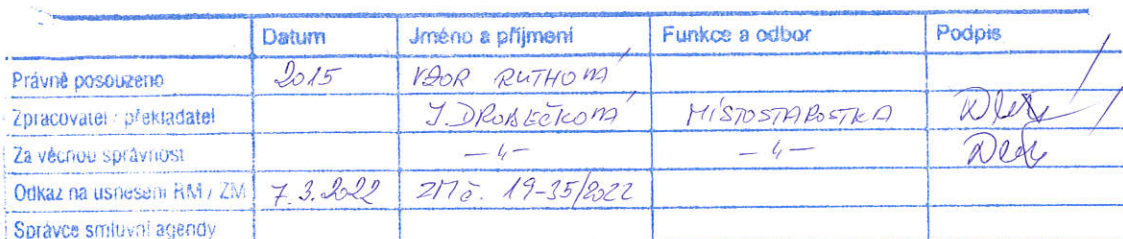 Datum Jméno a příjmení Funkce a odbor Podpis
Právně posouzeno 2015 VZOR RUTHOVÁ
Zpracovatel / překladatel J. DROBEČKOVÁ MÍSTOSTAROSTKA
Za věcnou správnost -"- -"-
Odkaz na usnesení RM / ZM 7.3.2022 ZM č. 19-35/2022
Správce smluvní agendy